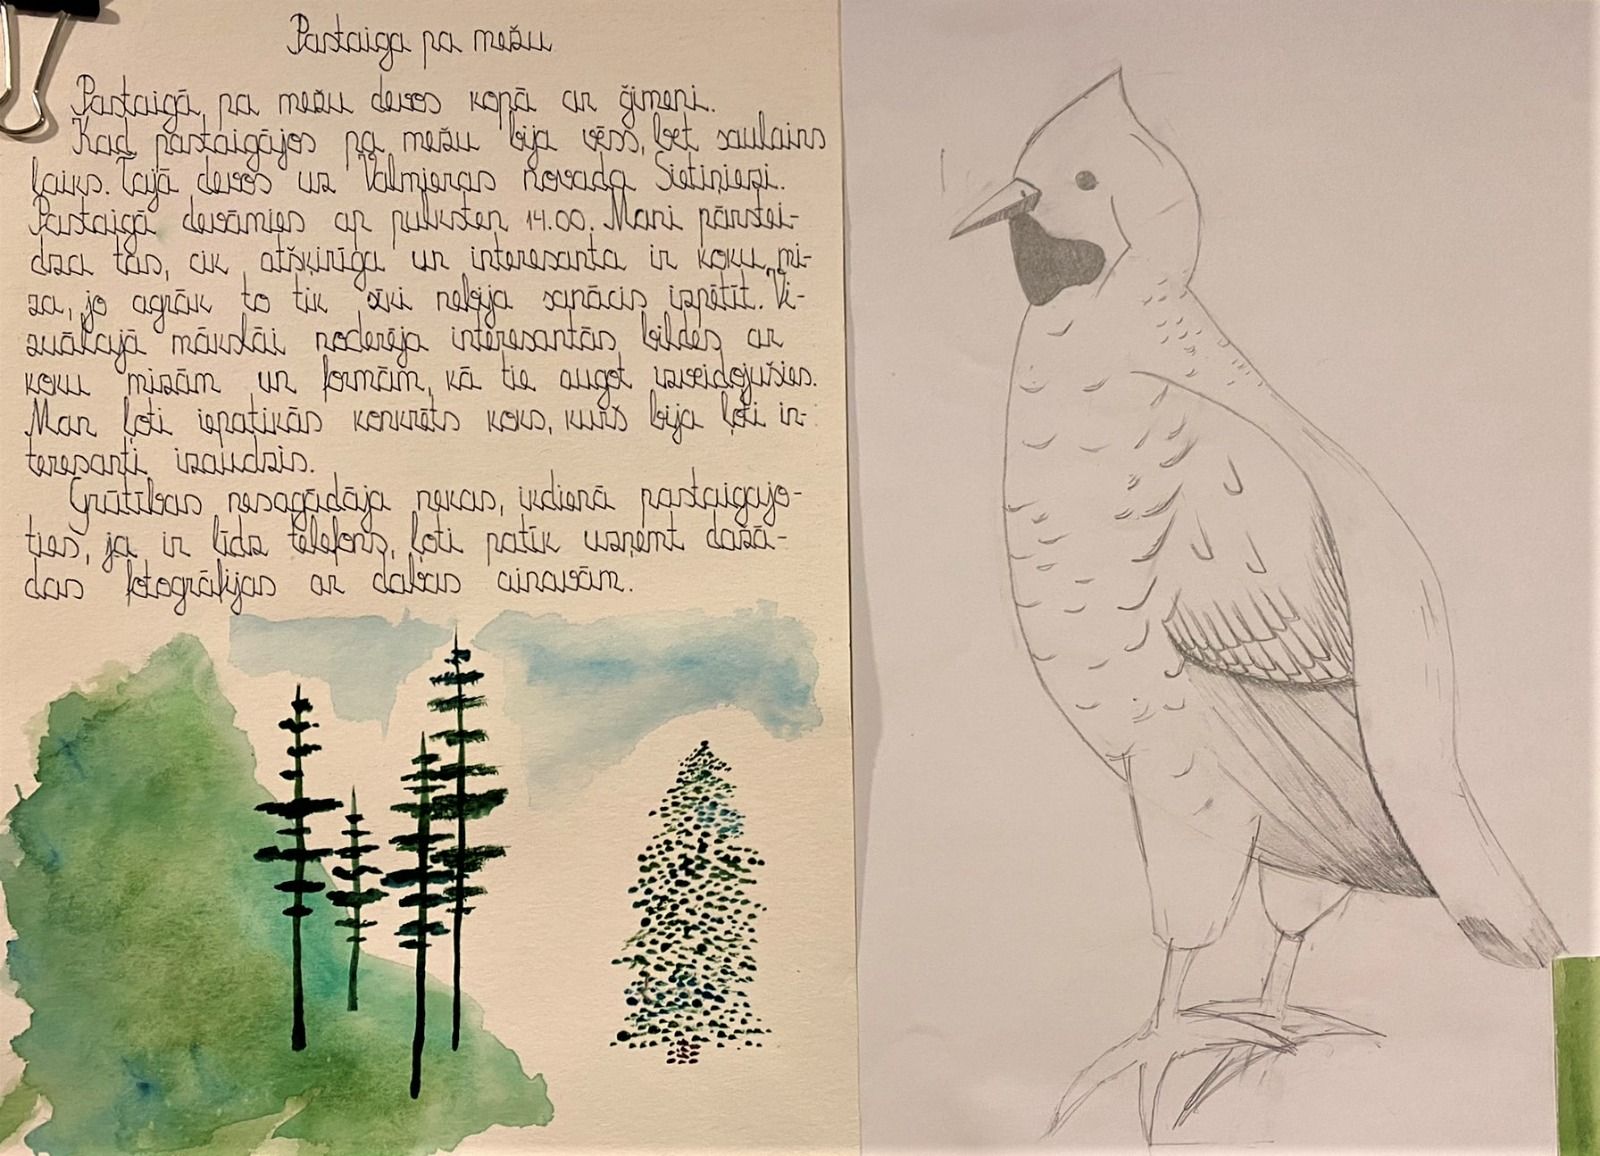 Pastaiga pa mežu
Pastaigā pa mežu devos kopā ar ģimeni.
Kad pastaigājos pa mežu bija vēss, bet saulains
laiks. Tajā devos uz Valmieras novada Sietiņiezi.
Pastaigā devāmies ar pulksten 14.00. Mani pārstei-
dza tas, cik atšķirīga un interesanta ir koku mi-
za, jo agrāk to tik sīki nebija sanācis izpētīt. Vi-
zuālajā mākslāi noderēja interesantās bildes ar
koku mizām un formām, kā tie augot izveidojušies.
Man ļoti iepatikās konkrēts koks, kurš bija ļoti in-
teresanti izaudzis.
Grūtības nesagādāja nekas, ikdienā pastaigajo-
ties, ja ir līdz telefons, ļoti patīk uzņemt dažā-
das fotogrāfijas ar dabas ainavām.